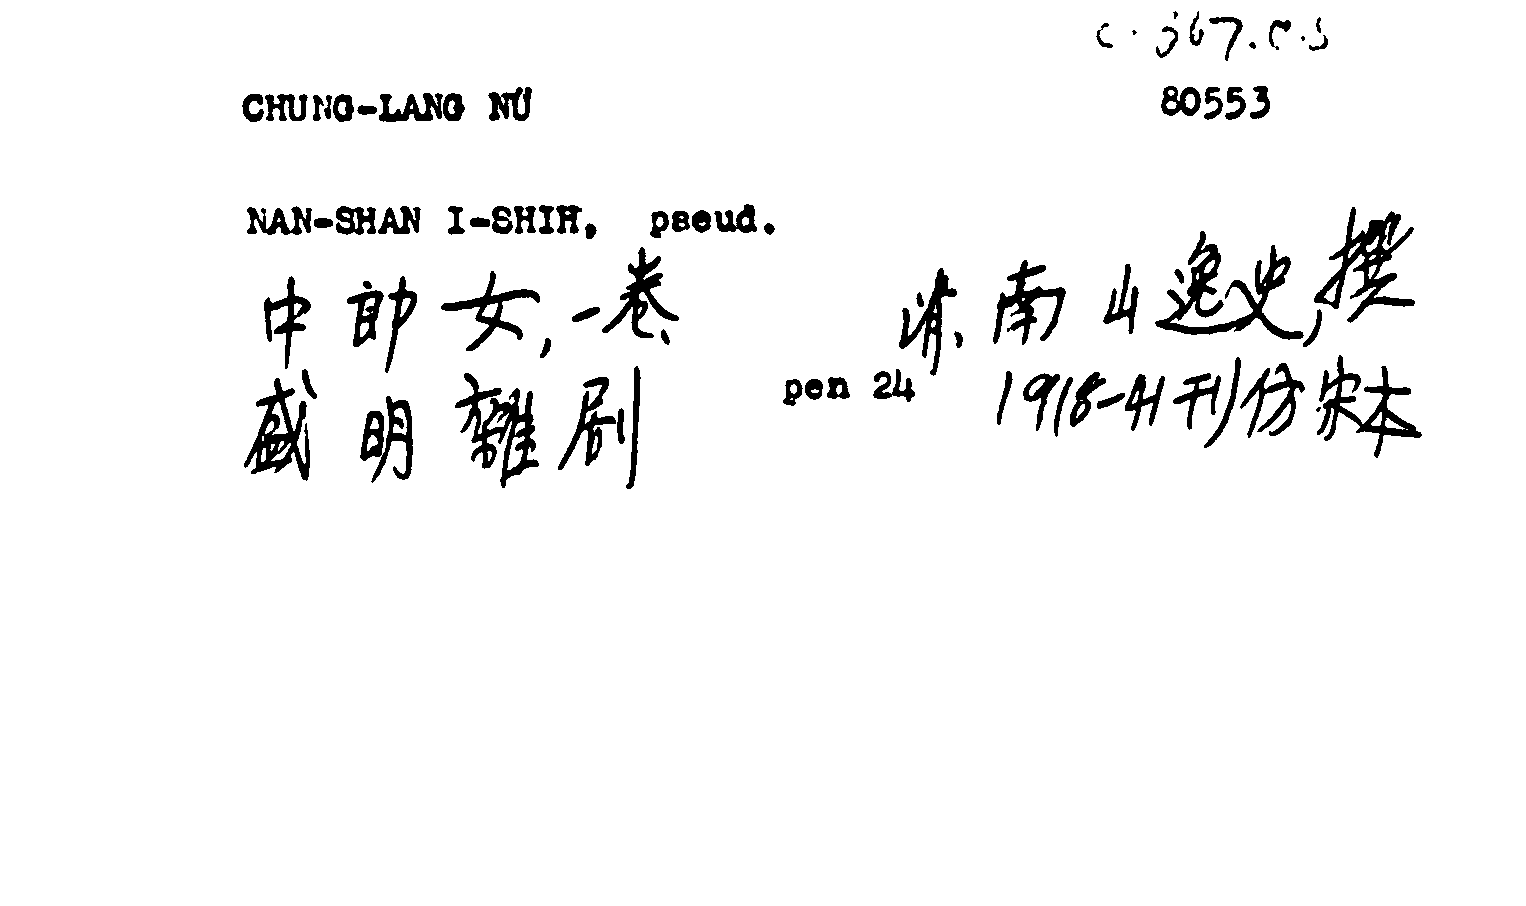 C.367.C.3
CHUNG-LANG NÜ 80553
NAN-SHAN I-SHIH, pseud.
中郎女, 一卷. 清. 南山逸史, 撰
盛明雜剧 pen 24 1918-41刊仿宋本